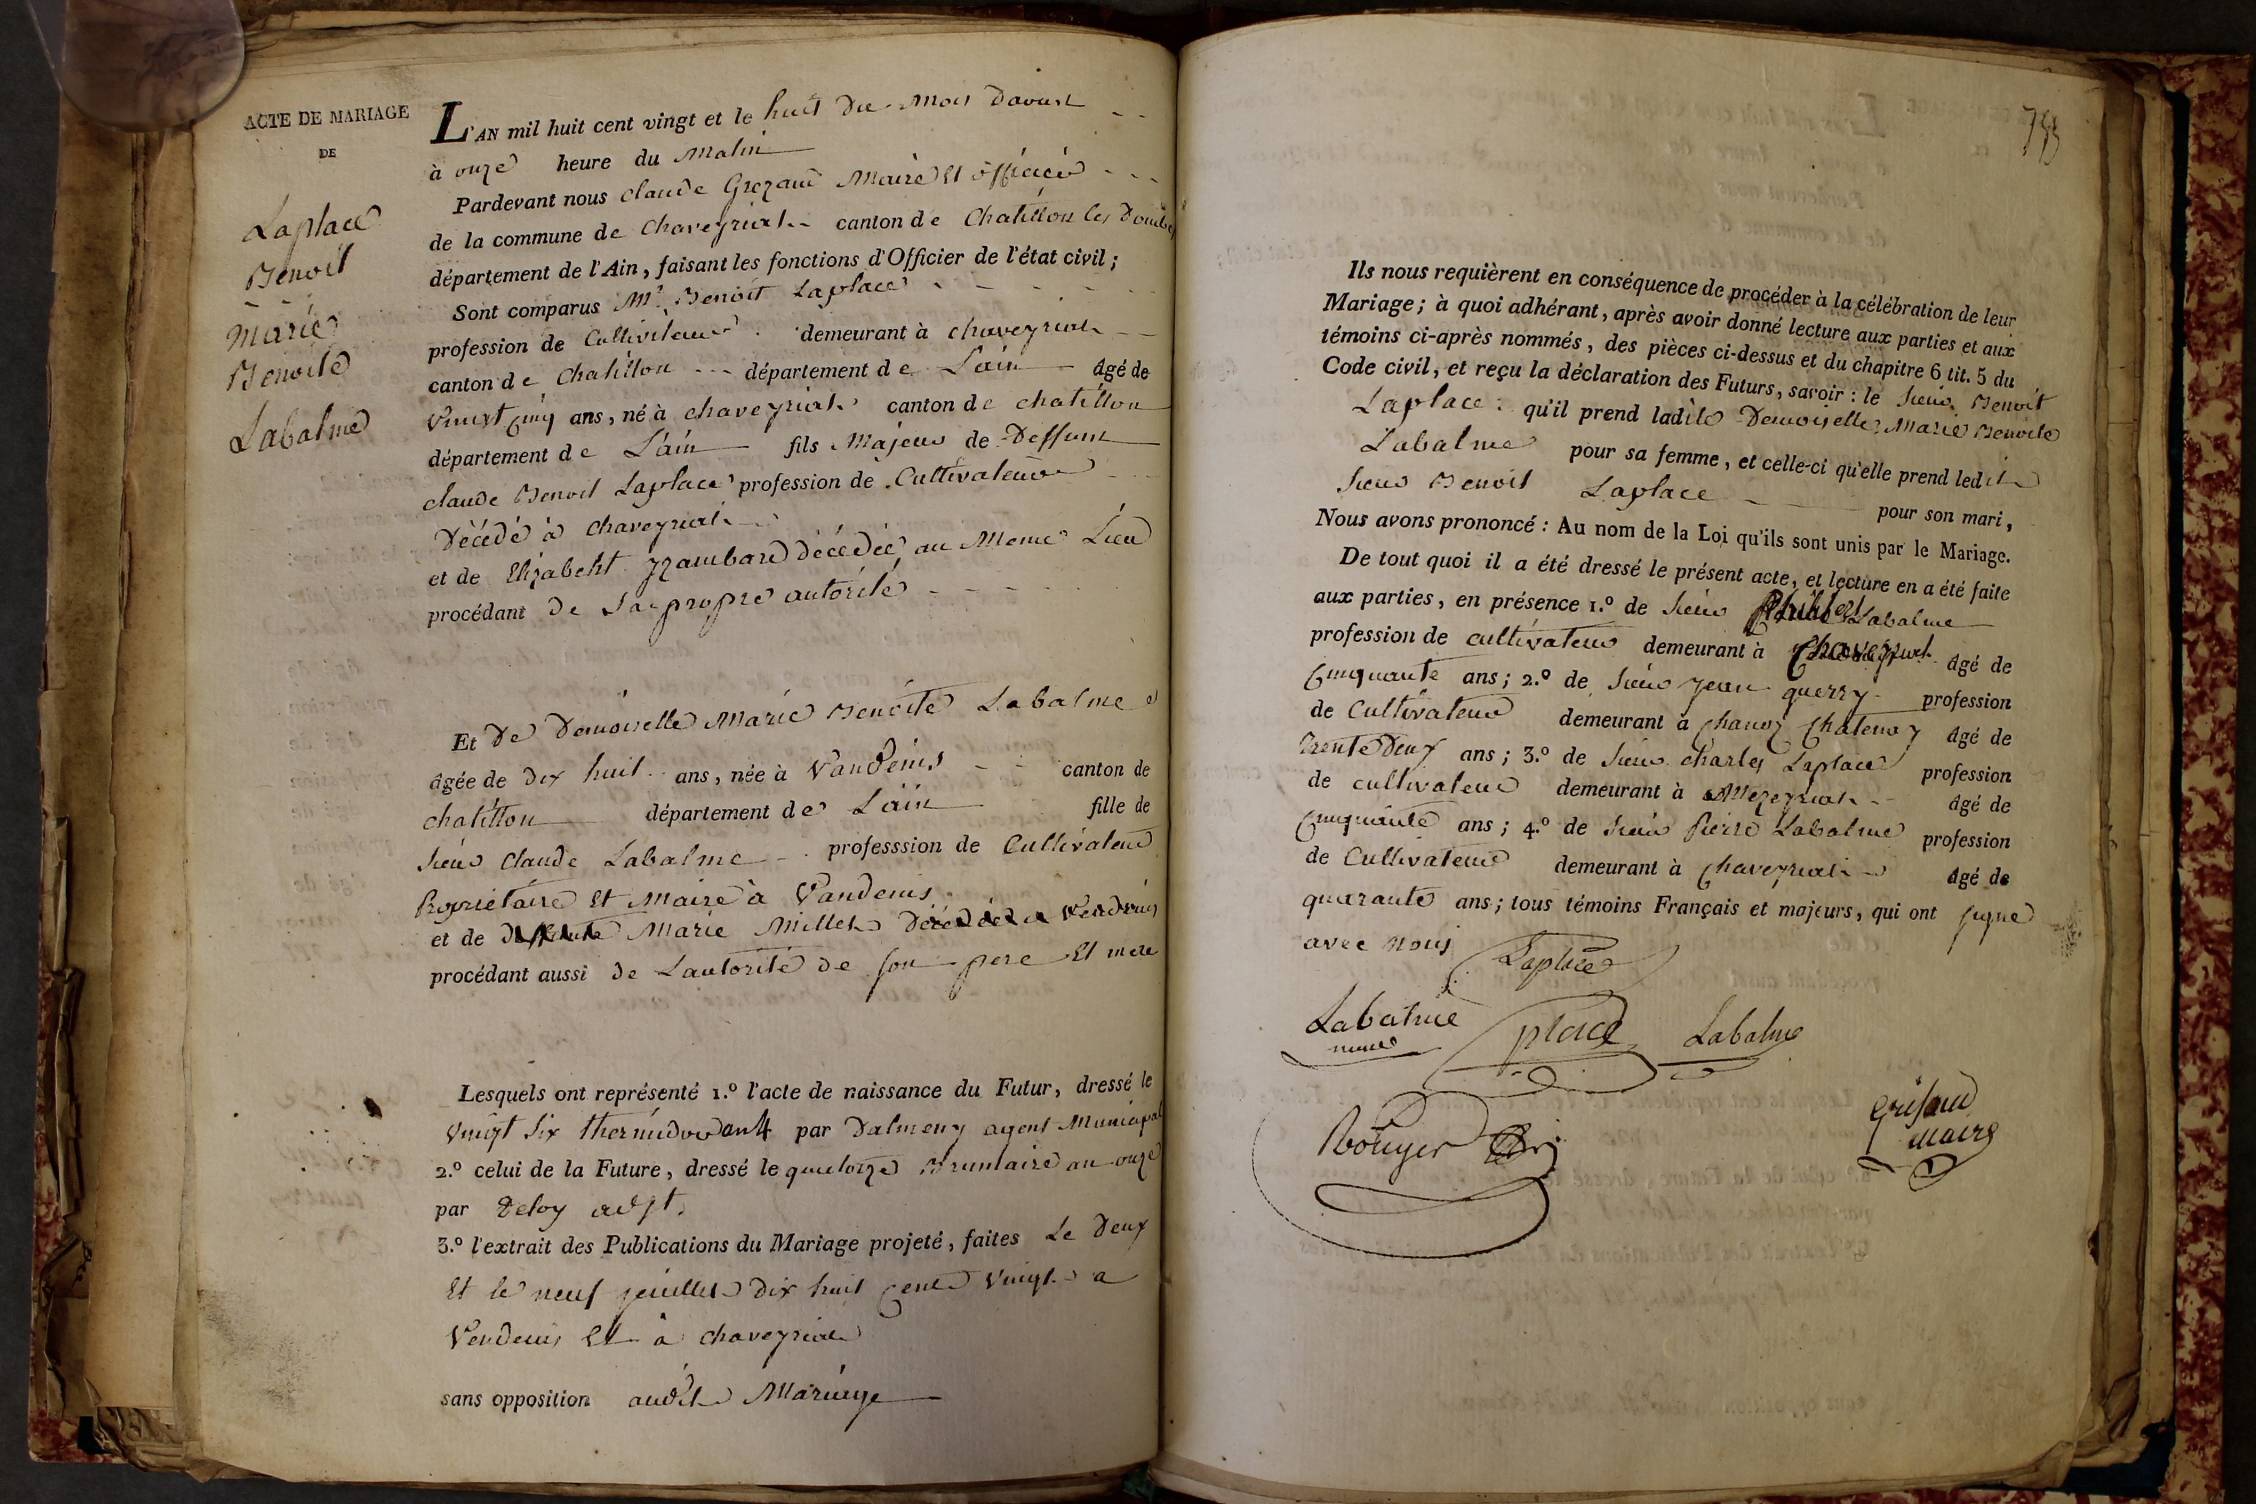 ACTE DE MARIAGE
DE
Laplace
Benoit
Marie
Benoite
Labalme
L'AN mil huit cent vingt et le huit du mois daoust
à onze heure du Matin
Pardevant nous claude Grezaud Maire Et officier
de la commune de Chaveyriat canton de Chatillon les Dombes
département de l'Ain, faisant les fonctions d'Officier de l'état civil;
Sont comparus Mr Benoit Laplace
profession de Cultivateur demeurant à chaveyriat
canton de chatillon département de L'ain âgé de
Vingt Cinq ans, né à chaveyriat canton de chatillon
département de L'ain fils Majeur de Deffunt
claude Benoit Laplace profession de Cultivateur
Décédé à chaveyriat
et de Elizabeht décédée au Meme Lieu
procédant de Sa propre autorité
Et De Demoiselle Marie Benoite Labalme
âgée de dix huit ans, née à Vandenis canton de
chatillon département de L'ain fille de
Sieur Claude Labalme professsion de Cultivateur
Propriétaire Et Maire à Vandenis
et de Marie Millet
procédant aussi de Lautorité de son pere Et mere
Lesquels ont représenté 1.º l'acte de naissance du Futur, dressé le
Vingt Six thermidor an 4 par Dalmeny agent Municipal
2.º celui de la Future, dressé le quatorze Brumaire an onze
par Deloy adjt.
3.º l'extrait des Publications du Mariage projeté, faites Le Deux
Et le neuf juillet Dix huit Cent Vingt a
Vendenis Et à chaveyriat
sans opposition audit Mariage
Ils nous requièrent en conséquence de procéder à la célébration de leur
Mariage; à quoi adhérant, après avoir donné lecture aux parties et aux
témoins ci-après nommés, des pièces ci-dessus et du chapitre 6 tit. 5 du
Code civil, et reçu la déclaration des Futurs, savoir: le Sieur Benoit
Laplace qu'il prend ladite Demoiselle Marie Benoite
Labalme pour sa femme, et celle-ci qu'elle prend ledit
Sieur Benoit Laplace pour son mari,
Nous avons prononcé: Au nom de la Loi qu'ils sont unis par le Mariage.
De tout quoi il a été dressé le présent acte, et lecture en a été faite
aux parties, en présence 1.º de Sieur Philibert Labalme
profession de cultivateur demeurant à Chaveyriat âgé de
Cinquante ans; 2.º de Sieur Jean querry profession
de Cultivateur demeurant à Chanoz Chatenay âgé de
trente Deux ans; 3.º de Sieur charles Laplace profession
de cultivateur demeurant à Mezeyriat âgé de
Cinquante ans; 4.º de Sieur Pierre Labalme profession
de Cultivateur demeurant à Chaveyriat âgé de
quarante ans; tous témoins Français et majeurs, qui ont signé
avec nous Laplace
Labalme place Labalme
maire
Grisaud
maire